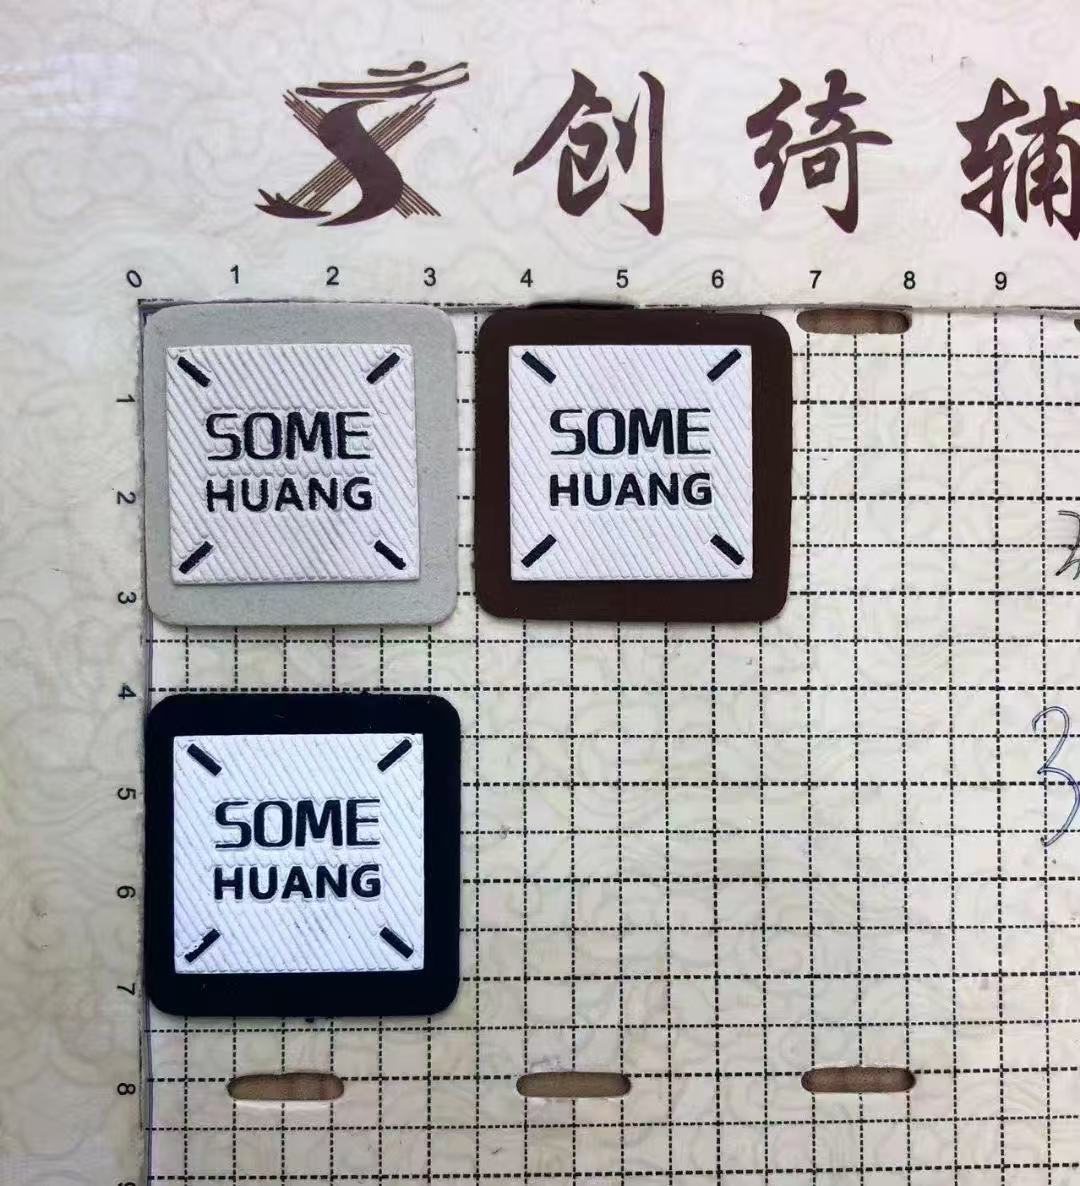 创绮辅
0 1 2 3 4 5 6 7 8 9
1
2
3
4
5
6
7
8
SOME
HUANG
SOME
HUANG
SOME
HUANG
3